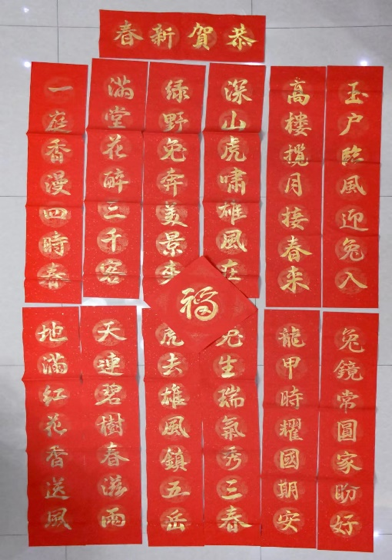 恭賀新春
玉户臨風迎兔入
高樓攬月接春来
深山虎嘯雄風在
绿野兔奔美景来
满堂花醉三千客
一庭香漫四時春
福
兔鏡常圓家盼好
龍甲時耀國期安
兔生瑞氣秀三春
虎去雄風鎮五岳
天連碧樹春滋雨
地满红花香送風